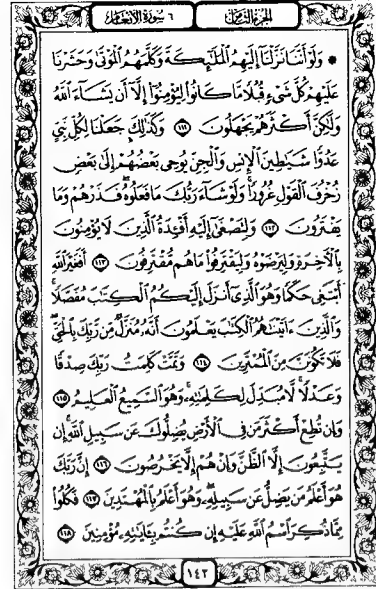 الجزء الثامن
٦ سورة الأنعام
۞ وَلَوْ أَنَّنَا نَزَّلْنَا إِلَيْهِمُ الْمَلَٰٓئِكَةَ وَكَلَّمَهُمُ الْمَوْتَىٰ وَحَشَرْنَا
عَلَيْهِمْ كُلَّ شَىْءٍ قُبُلًا مَّا كَانُوا۟ لِيُؤْمِنُوٓا۟ إِلَّآ أَن يَشَآءَ اللَّهُ
وَلَٰكِنَّ أَكْثَرَهُمْ يَجْهَلُونَ ۝١١١ وَكَذَٰلِكَ جَعَلْنَا لِكُلِّ نَبِىٍّ
عَدُوًّا شَيَٰطِينَ الْإِنسِ وَالْجِنِّ يُوحِى بَعْضُهُمْ إِلَىٰ بَعْضٍ
زُخْرُفَ الْقَوْلِ غُرُورًا ۚ وَلَوْ شَآءَ رَبُّكَ مَا فَعَلُوهُ ۖ فَذَرْهُمْ وَمَا
يَفْتَرُونَ ۝١١٢ وَلِتَصْغَىٰٓ إِلَيْهِ أَفْـِٔدَةُ الَّذِينَ لَا يُؤْمِنُونَ
بِالْءَاخِرَةِ وَلِيَرْضَوْهُ وَلِيَقْتَرِفُوا۟ مَا هُم مُّقْتَرِفُونَ ۝١١٣ أَفَغَيْرَ اللَّهِ
أَبْتَغِى حَكَمًا وَهُوَ الَّذِىٓ أَنزَلَ إِلَيْكُمُ الْكِتَٰبَ مُفَصَّلًا ۚ
وَالَّذِينَ ءَاتَيْنَٰهُمُ الْكِتَٰبَ يَعْلَمُونَ أَنَّهُۥ مُنَزَّلٌ مِّن رَّبِّكَ بِالْحَقِّ ۖ
فَلَا تَكُونَنَّ مِنَ الْمُمْتَرِينَ ۝١١٤ وَتَمَّتْ كَلِمَتُ رَبِّكَ صِدْقًا
وَعَدْلًا ۚ لَّا مُبَدِّلَ لِكَلِمَٰتِهِۦ ۚ وَهُوَ السَّمِيعُ الْعَلِيمُ ۝١١٥
وَإِن تُطِعْ أَكْثَرَ مَن فِى الْأَرْضِ يُضِلُّوكَ عَن سَبِيلِ اللَّهِ ۚ إِن
يَتَّبِعُونَ إِلَّا الظَّنَّ وَإِنْ هُمْ إِلَّا يَخْرُصُونَ ۝١١٦ إِنَّ رَبَّكَ
هُوَ أَعْلَمُ مَن يَضِلُّ عَن سَبِيلِهِۦ ۖ وَهُوَ أَعْلَمُ بِالْمُهْتَدِينَ ۝١١٧ فَكُلُوا۟
مِمَّا ذُكِرَ اسْمُ اللَّهِ عَلَيْهِ إِن كُنتُم بِـَٔايَٰتِهِۦ مُؤْمِنِينَ ۝١١٨
١٤٢